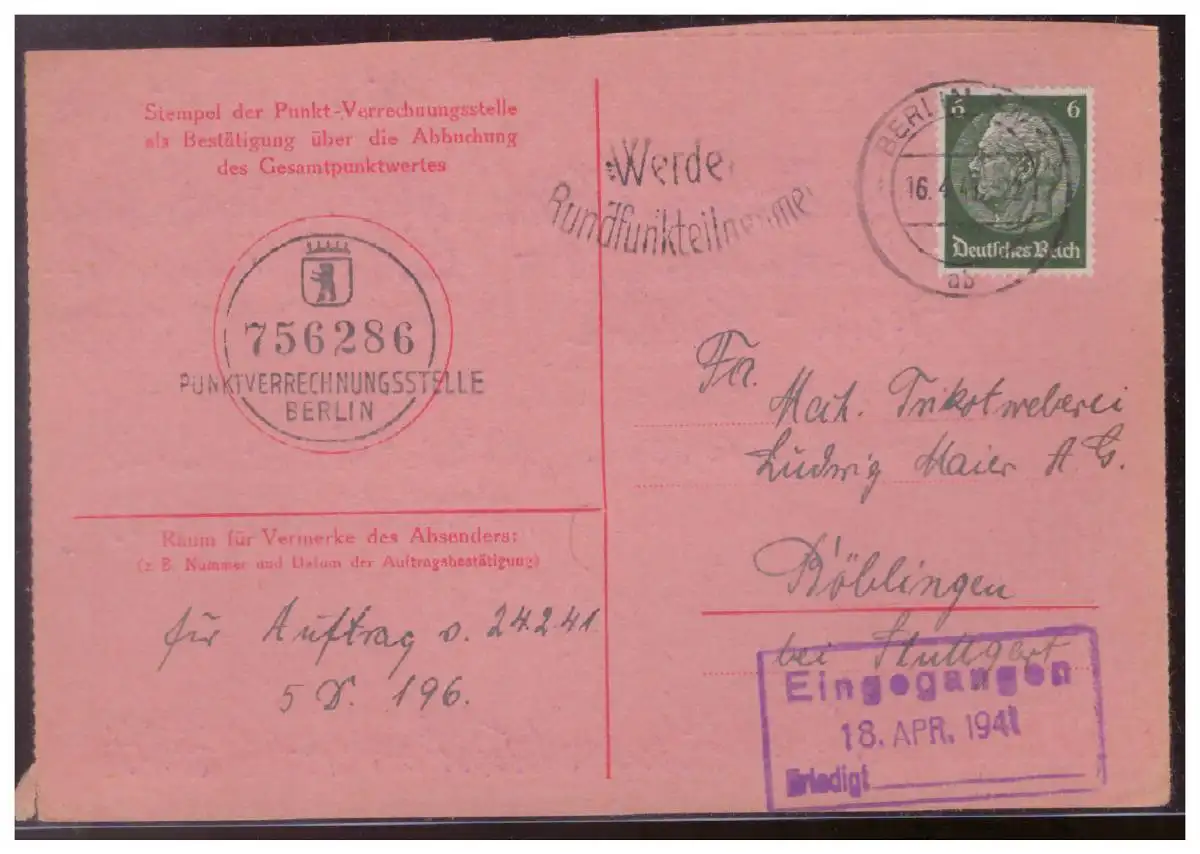 Stempel der Punkt-Verrechnungsstelle
als Bestätigung über die Abbuchung
des Gesamtpunktwertes
756286
PUNKTVERRECHNUNGSSTELLE
BERLIN
Raum für Vermerke des Absenders:
(z. B. Nummer und Datum der Auftragsbestätigung)
für Auftrag v. 24.2.41
5 D. 196.
Werde
Rundfunkteilnehmer
BERLIN
16. 4
ab
6 6
Deutsches Reich
Fa.
Mech. Trikotweberei
Ludwig Maier A G.
Böblingen
bei Stuttgart
Eingegangen
18. APR. 1941
Erledigt